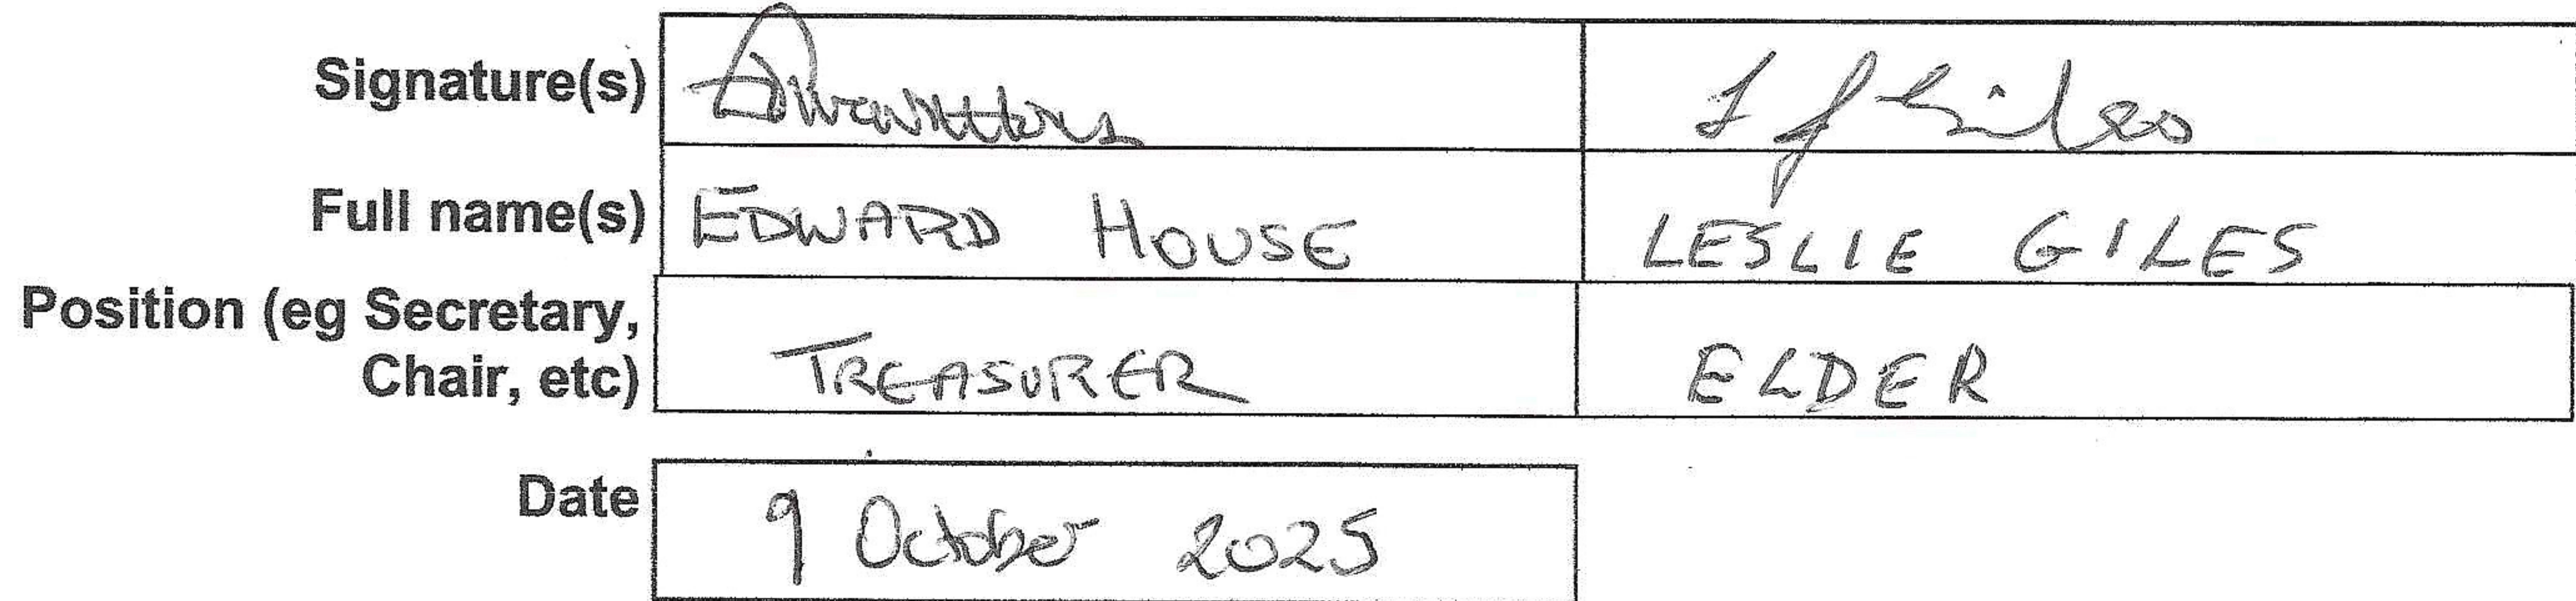 Signature(s)
Full name(s) EDWARD HOUSE LESLIE GILES
Position (eg Secretary,
Chair, etc) TREASURER ELDER
Date 9 October 2025